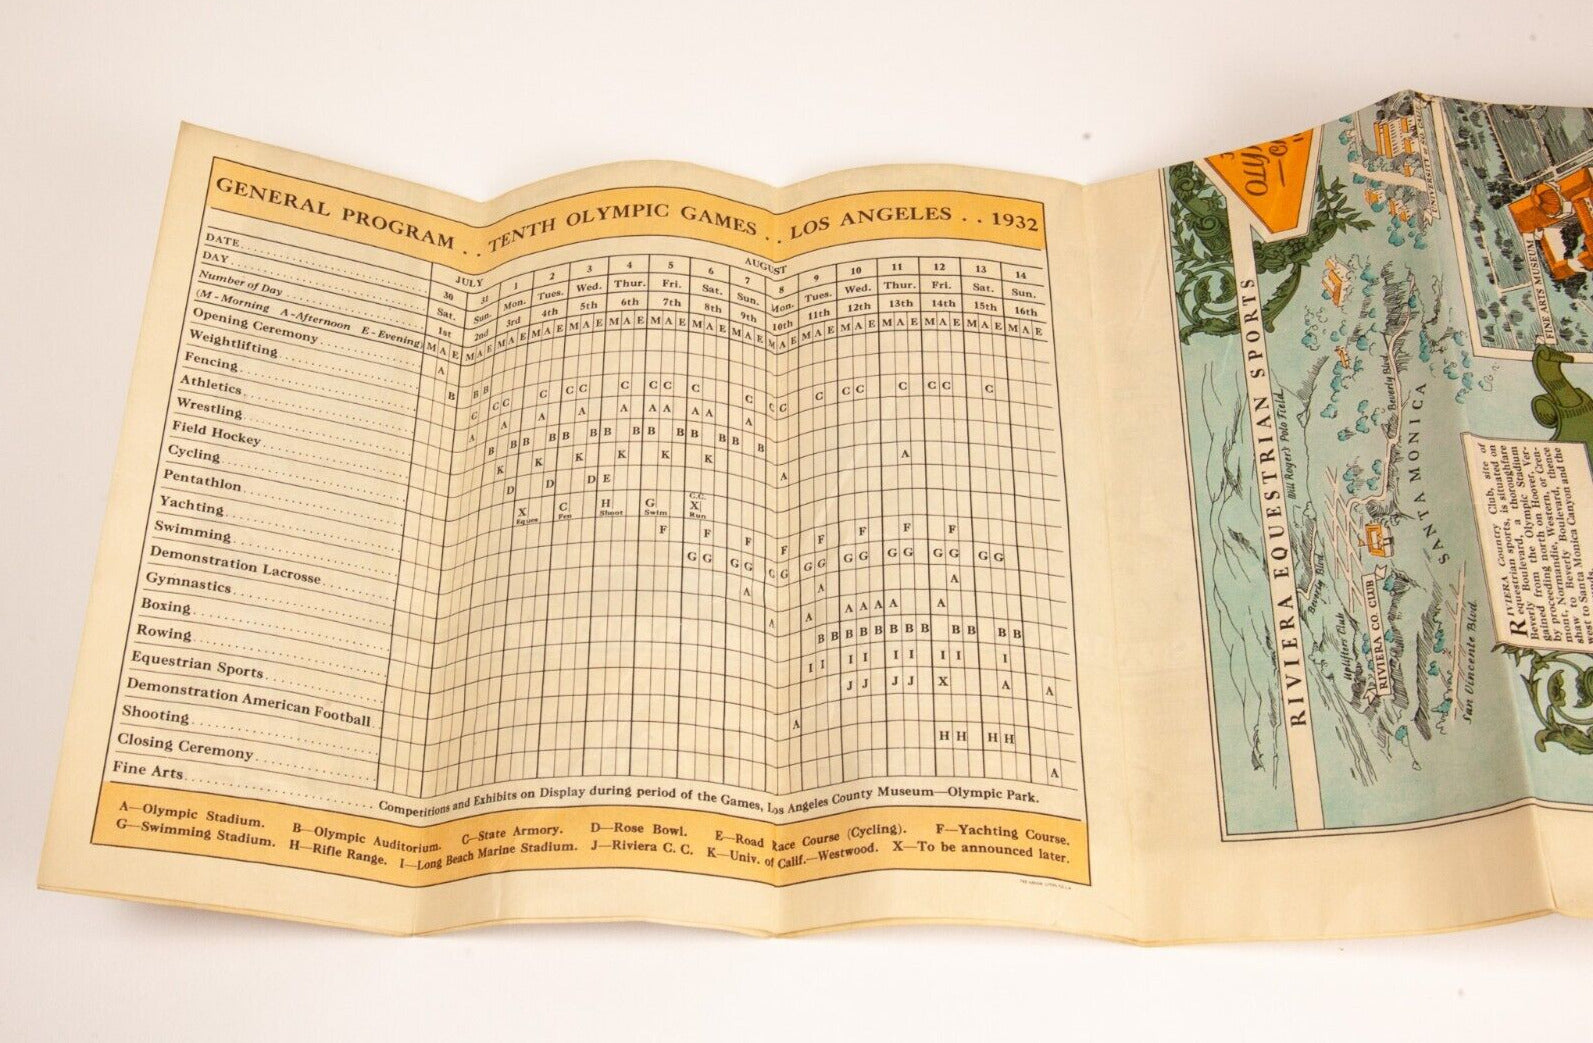 GENERAL PROGRAM . . TENTH OLYMPIC GAMES . . LOS ANGELES . . 1932
JULY AUGUST
DATE 30 31 1 2 3 4 5 6 7 8 9 10 11 12 13 14
DAY Sat. Sun. Mon. Tues. Wed. Thur. Fri. Sat. Sun. Mon. Tues. Wed. Thur. Fri. Sat. Sun.
Number of Day 1st 2nd 3rd 4th 5th 6th 7th 8th 9th 10th 11th 12th 13th 14th 15th 16th
(M - Morning A - Afternoon E - Evening) M A E M A E M A E M A E M A E M A E M A E M A E M A E M A E M A E M A E M A E M A E M A E M A E
Opening Ceremony A
Weightlifting B B B
Fencing C C C C C C C C C C C C C C C C C C C
Athletics A A A A A A A A A A
Wrestling B B B B B B B B B B B B B B
Field Hockey K K K K K K A A
Cycling D D D E
Pentathlon X Eques C Fen H Shoot G Swim C.C. X Run
Yachting F F F F F F F F
Swimming G G G G G G G G G G G G G G
Demonstration Lacrosse A A A
Gymnastics A A A A A A A
Boxing B B B B B B B B B B B B
Rowing I I I I I I I I I
Equestrian Sports J J J J X A A
Demonstration American Football A
Shooting H H H H
Closing Ceremony A
Fine Arts Competitions and Exhibits on Display during period of the Games, Los Angeles County Museum—Olympic Park.
A—Olympic Stadium. B—Olympic Auditorium. C—State Armory. D—Rose Bowl. E—Road Race Course (Cycling). F—Yachting Course.
G—Swimming Stadium. H—Rifle Range. I—Long Beach Marine Stadium. J—Riviera C. C. K—Univ. of Calif.—Westwood. X—To be announced later.
RIVIERA EQUESTRIAN SPORTS
Will Roger's Polo Field
Beverly Blvd
Uplifters Club
RIVIERA CO. CLUB
Beverly Blvd
SANTA MONICA
San Vincente Blvd.
FINE ARTS MUSEUM
RIVIERA Country Club, site of
equestrian sports, is situated on
Beverly Boulevard, a thoroughfare
gained from the Olympic Stadium
by proceeding north on Hoover, Ver-
mont, Normandie, Western, or Cren-
shaw to Beverly Boulevard, thence
west to Santa Monica Canyon and the